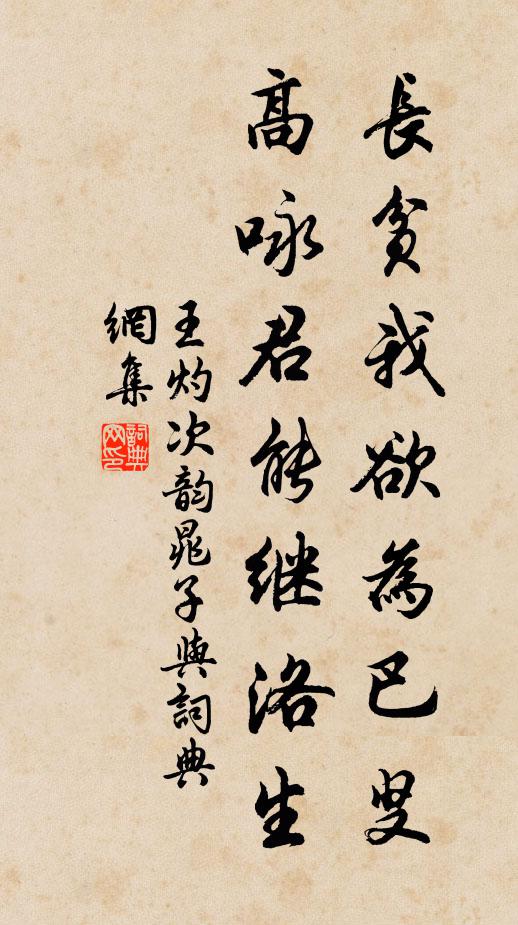 長貧我欲為巴叟
高咏君能継洛生
王灼次韵晁子與詞典
網集
詞典網印